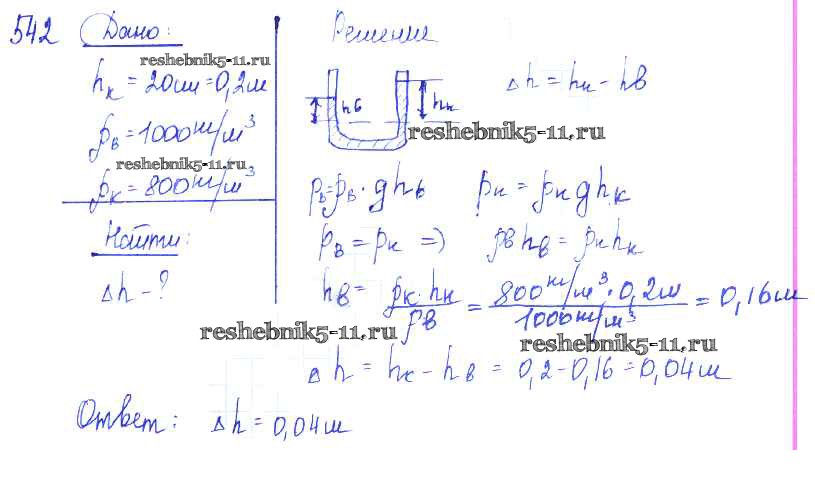 542 Дано:
reshebnik5-11.ru
hк = 20см = 0,2м
ρв = 1000 кг/м³
reshebnik5-11.ru
ρк = 800 кг/м³
Найти:
Δh - ?
Решение
hв hк
Δh = hк - hв
reshebnik5-11.ru
pв = ρв · ghв pк = ρкghк
pв = pк => ρвhв = ρкhк
hв = ρк · hк / ρв = 800 кг/м³ · 0,2м / 1000 кг/м³ = 0,16м
reshebnik5-11.ru
reshebnik5-11.ru
Δh = hк - hв = 0,2 - 0,16 = 0,04м
Ответ: Δh = 0,04м